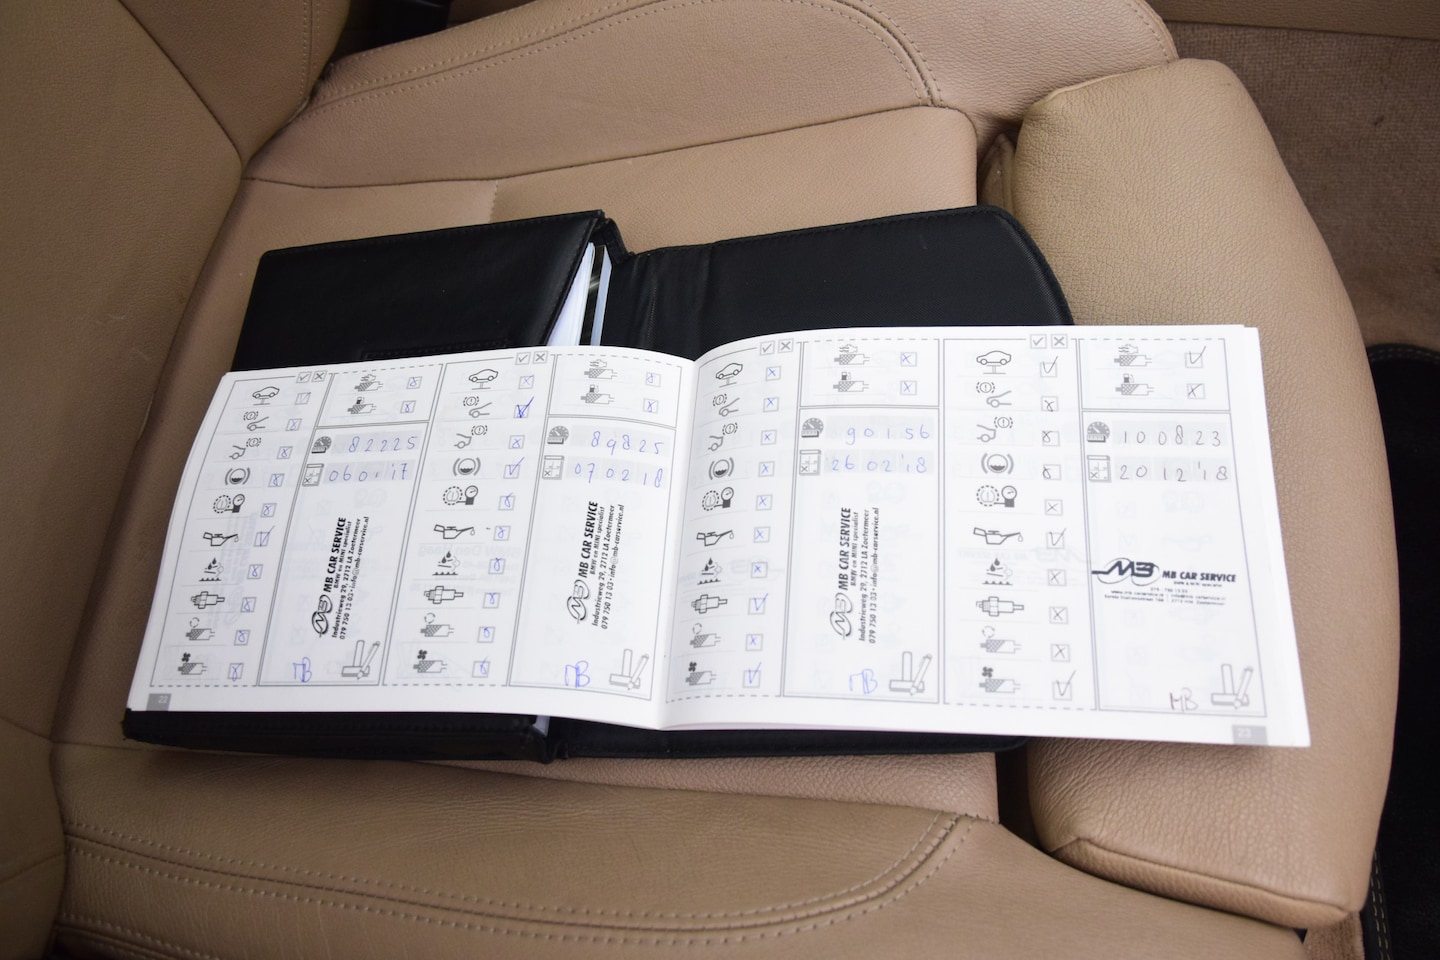 82225
06 01 '17
MB CAR SERVICE
BMW en MINI specialist
Industrieweg 29, 2712 LA Zoetermeer
079 750 13 03 • info@mb-carservice.nl
MB
22
89825
07 02 18
MB CAR SERVICE
BMW en MINI specialist
Industrieweg 29, 2712 LA Zoetermeer
079 750 13 03 • info@mb-carservice.nl
MB
90156
26 02 '18
MB CAR SERVICE
BMW en MINI specialist
Industrieweg 29, 2712 LA Zoetermeer
079 750 13 03 • info@mb-carservice.nl
MB
100823
20 12 '18
MB CAR SERVICE
MB
23